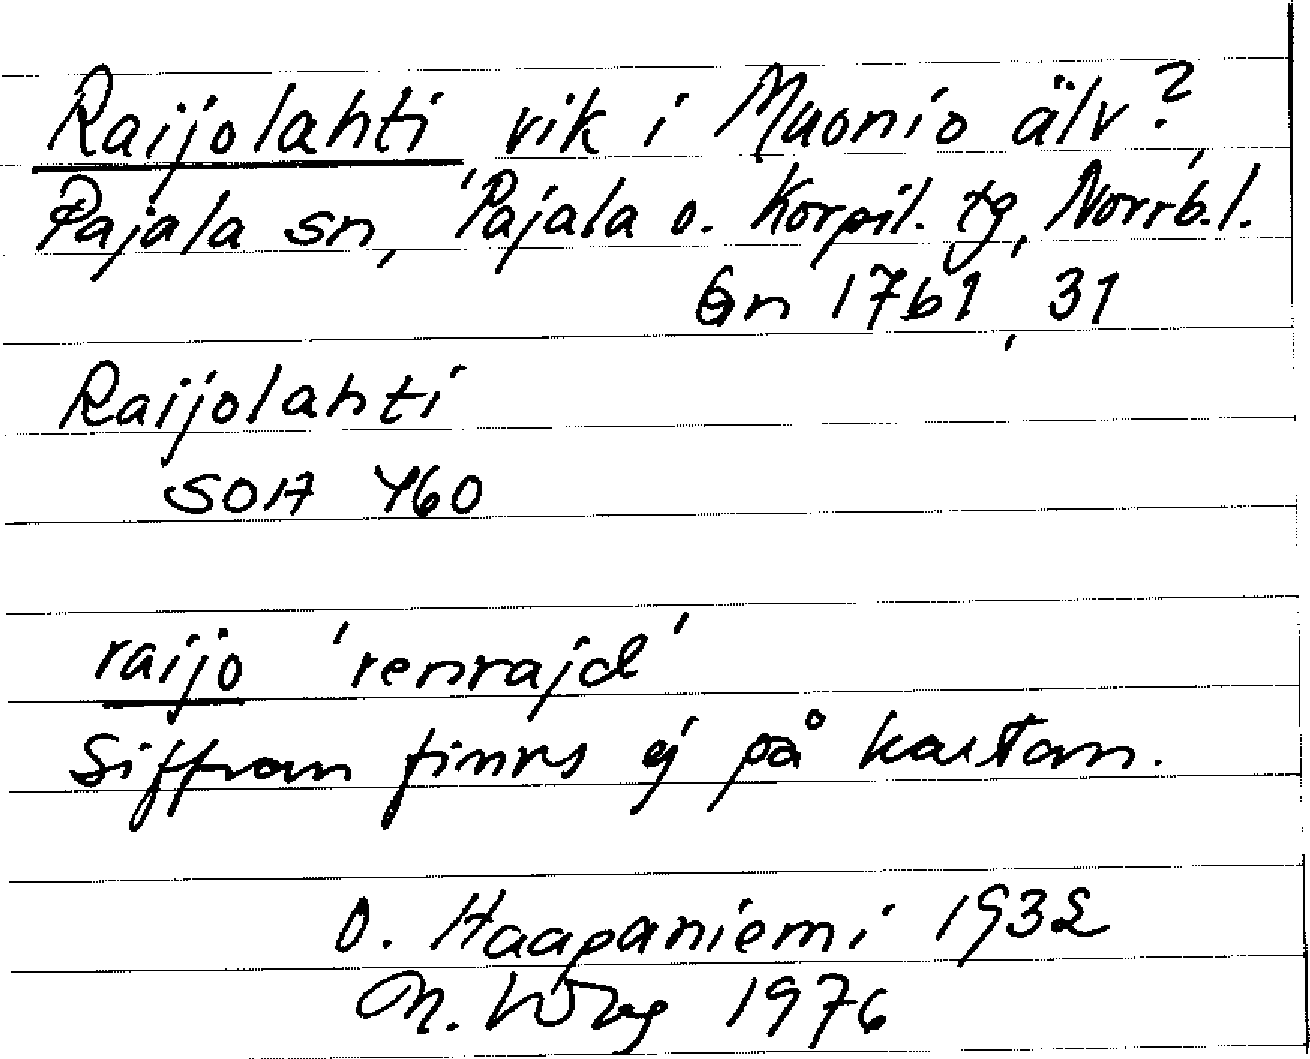 Raijolahti vik i Muonio älv?,
Pajala sn, Pajala o. Korpil. tg, Norrb.l.
Gn 1761, 31
Raijolahti
SOA 460
raijo 'renrajd'
Siffran finns ej på kartan.
O. Haapaniemi 1932
M. 1976